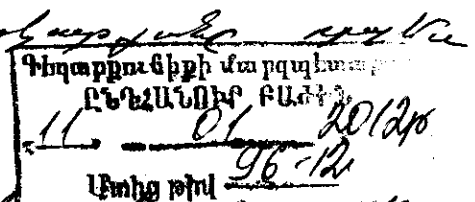 Գեղարքունիքի մարզպետարան
ԸՆԴՀԱՆՈՒՐ ԲԱԺԻՆ
« 11 » 01 2012թ
Մտից թիվ 96-12